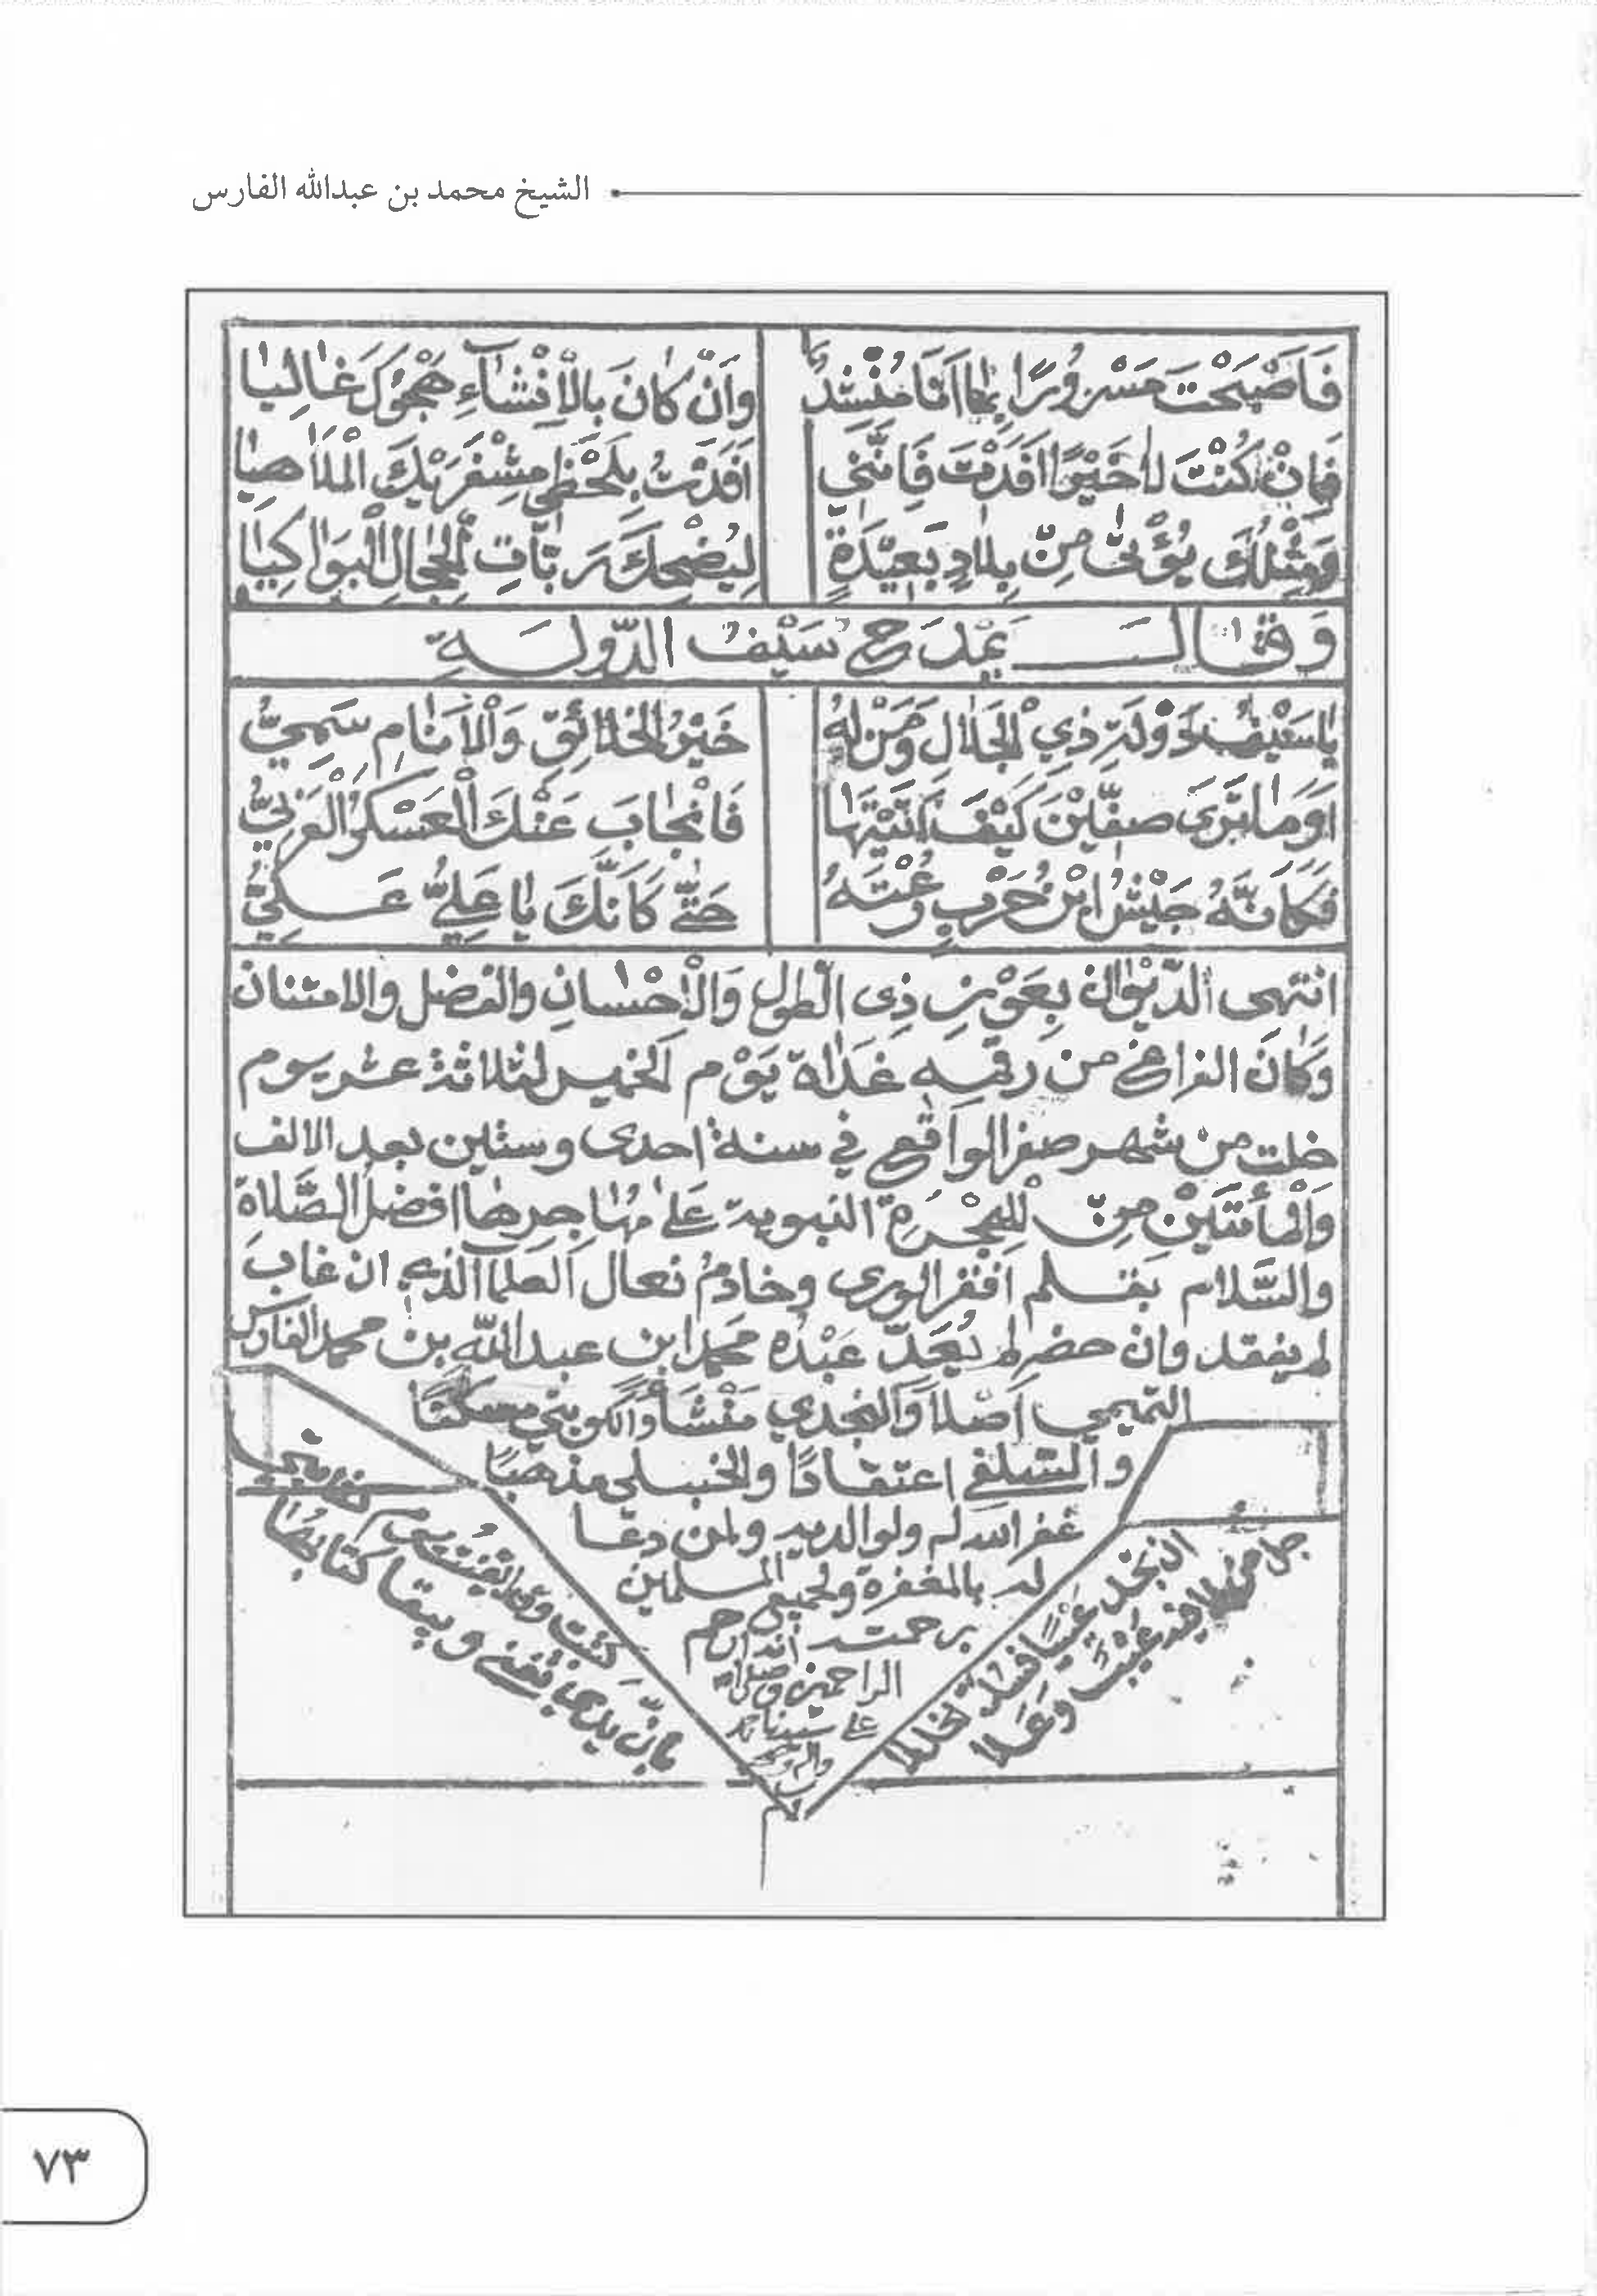 الشيخ محمد بن عبدالله الفارس
فَاَصْبَحْتَ مَسْرُورًا بِمَا اَنَا مُنْشِدٌ وَاِنْ كَانَ بِالْاِنْشَاءِ هَجْوُكَ غَالِيَا
فَاِنْ كُنْتَ لا خَيْرًا اَفَدْتَ فَاِنَّنِي اَفَدْتُ بِلَحْظِي مِشْفَرَيْكَ الْمَلَاهِيَا
وَمِثْلُكَ يُؤْتَى مِنْ بِلَادٍ بَعِيْدَةٍ لِيُضْحِكَ رَبَّاتِ الْحِجَالِ الْبَوَاكِيَا
وَقَالَ يَمْدَحُ سَيْفُ الدَّوْلَةِ
يَا سَيْفَ دَوْلَةِ ذِي الْجَلَالِ وَمَنْ لَهُ خَيْرُ الْخَلَائِقِ وَالْاَنَامِ سَمِيُّ
اَوَمَا تَرَى صِفَّيْنَ كَيْفَ اَتَيْتَهَا فَانْجَابَ عَنْكَ الْعَسْكَرُ الْغَرْبِيُّ
فَكَاَنَّهُ جَيْشُ ابْنِ حَرْبٍ رُعْتَهُ حَتَّى كَاَنَّكَ يَا عَلِيُّ عَلِيُّ
انتهى الدِّيْوَان بِعَوْنِ ذِى الطول وَالْاِحْسَانِ والفضل والامتنان
وَكَانَ الفراغ من رقمه غَدَاة يَوْم الخميس لثلاثة عشر يوم
خلت من شهر صفر الواقع في سنة احدى وستين بعد الالف
وَالْمأَتَيْنِ مِنَ الْهِجْرَةِ النبوية عَلَى مُهَاجِرِهَا افضل الصَّلَاة
والسَّلام بقلم افقر الورى وخادمُ نعال العلما الذي ان غابَ
لم يفقد وان حضر لم يُعَدّ عَبْدُه محمد ابن عبدالله بن محمد الفارس
التميمي اَصْلاً وَالنجدي مَنْشَأً وَالكويتي مسكنًا
والسلفي اعتقادًا والحنبلي مذهبًا
غفر الله له ولوالديه ولمن دعا
له بالمغفرة ولجميع المسلمين
برحمته انه ارحم
الراحمين وصلى الله
على سيدنا محمد
كتبت وقد ايقنت
بانّ يدى تفنى ويبقا كتابها
جل من لا فيه عيب وعلا
٧٣